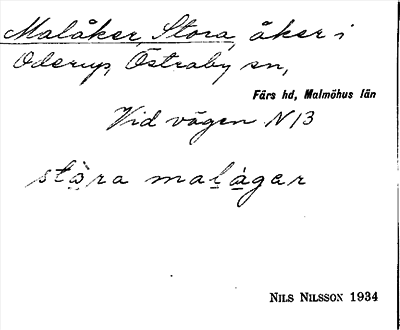 Malåker, Stora, åker i
Oderup, Östraby sn,
Färs hd, Malmöhus län
Vid vägen N 13
stòra mal̥àgɘr
NILS NILSSON 1934